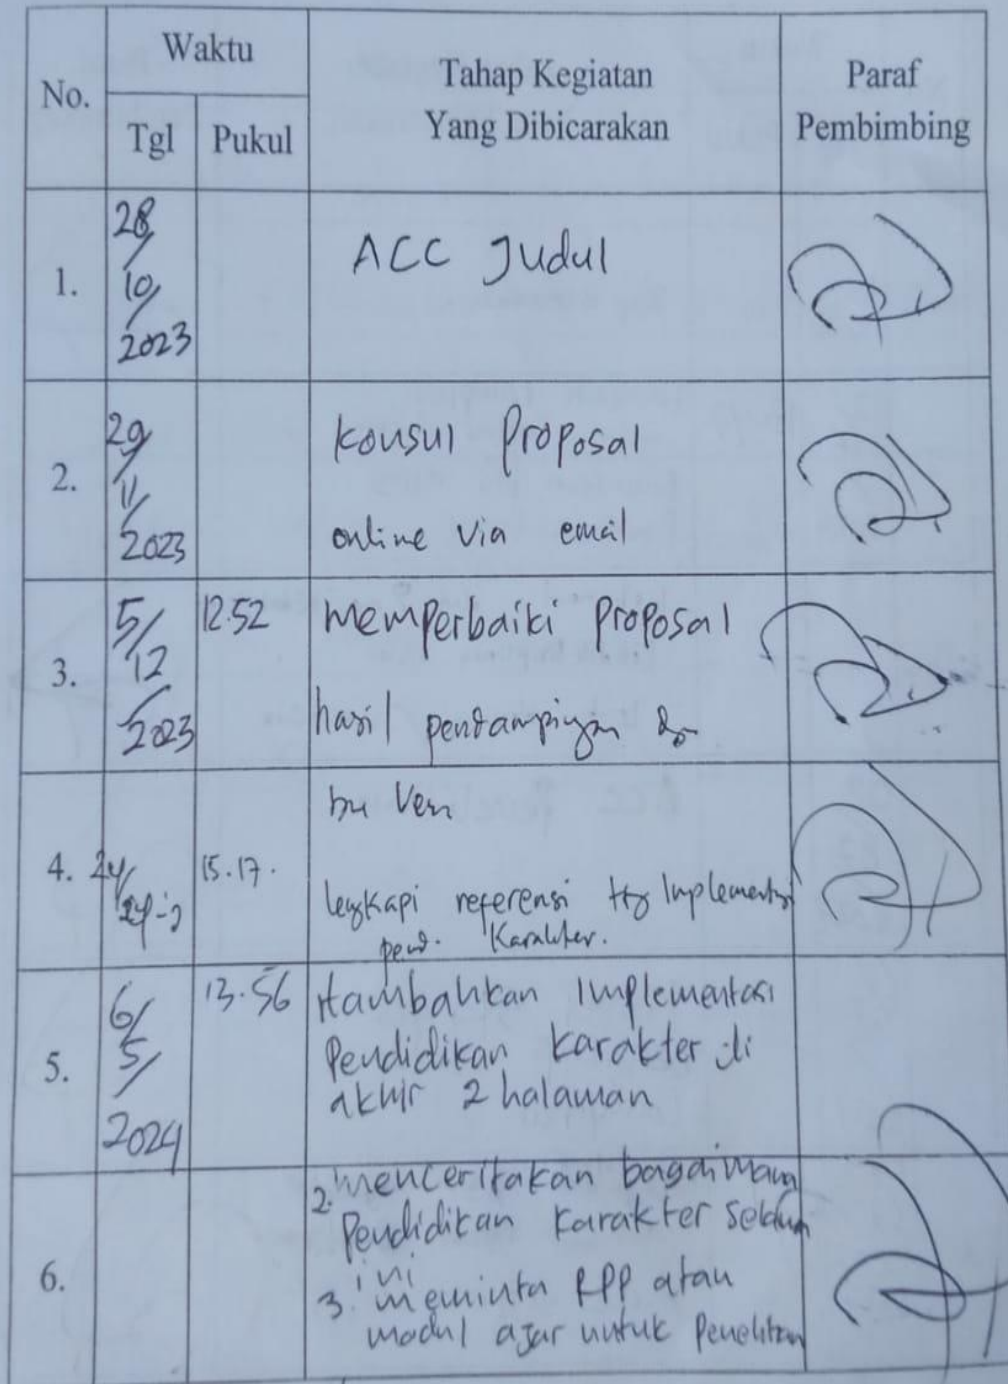 No.
Waktu
Tgl
Pukul
Tahap Kegiatan
Yang Dibicarakan
Paraf
Pembimbing
1.
28/
10/
2023
ACC Judul
2.
29/
11/
2023
Konsul Proposal
online via email
3.
5/
12
/2023
12.52
memperbaiki proposal
hasil
4.
15.17.
bu Ven
lengkapi referensi ttg Implementasi
pend. Karakter.
5.
6/
5/
2024
13.56
tambahkan Implementasi
Pendidikan karakter di
akhir 2 halaman
6.
2. menceritakan bagaimana
Pendidikan karakter
ini
3. meminta RPP atau
modul ajar untuk Penelitian